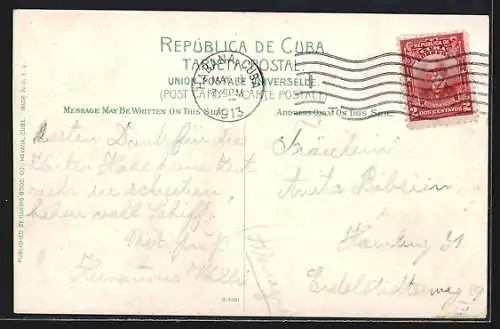 REPÚBLICA DE CUBA
TARJETA POSTAL
UNION POSTALE UNIVERSELLE
(POST CARD—CARTE POSTALE)
MESSAGE MAY BE WRITTEN ON THIS SIDE
ADDRESS ONLY ON THIS SIDE
PUBLISHED BY HARRIS BROS. CO., HAVANA, CUBA. MADE IN U. S. A.
HABANA, CUBA
MAY
1913
REPUBLICA DE CUBA
2 DOS CENTAVOS 2
Besten Dank für die
Karten Habe keine Zeit
mehr zu schreiben
haben voll Schiff.
Mit Gruß
Willi
Fräulein
Anita
Hamburg 31.
Eidelstedterweg